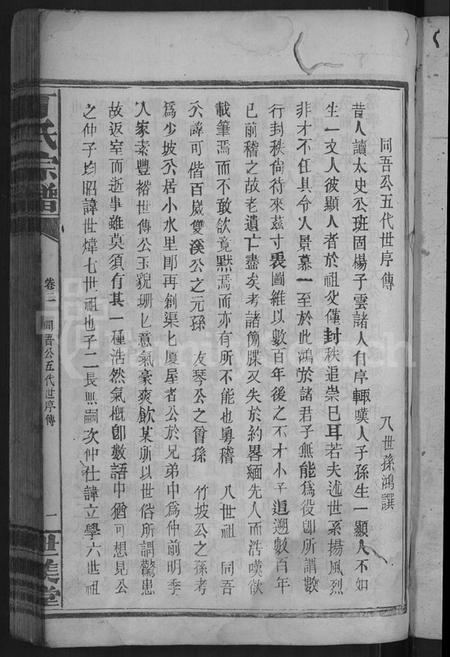 同吾公五代世序傳
八世孫鴻譔
昔人讀太史公班固楊子雲諸人自序輒嘆人子孫生一顯人不如
生一文人彼顯人者於祖父僅封秩追崇已耳若夫述世系揚風烈
非才不任具令人景慕一至於此鴻於諸君子無能為役卽所謂數
行封秩尙待來茲寸裘圖維以數百年後之不才小子追遡數百年
已前稽之故老遺亡盡矣考諸簡牒又失於約畧緬先人而浩嘆欲
載筆焉而不敢欲竟黙焉而亦有所不能也粤稽 八世祖 同吾
公諱可偕百歲雙溪公之元孫 友琴公之曾孫 竹坡公之孫考
為少坡公居小水里卽再創渠乚廈屋者公於兄弟中為仲前明季
人家素豐裕世傳公玉貌珊乚意氣豪爽飮某所以世俗所謂驚患
故返室而逝事雖莫須有其一種浩然氣槪卽數語中猶可想見公
之仲子均昭諱世煒七世祖也子二長熙嗣次仲仕諱立學六世祖
氏宗譜
卷二 同吾公五代世序傳
一